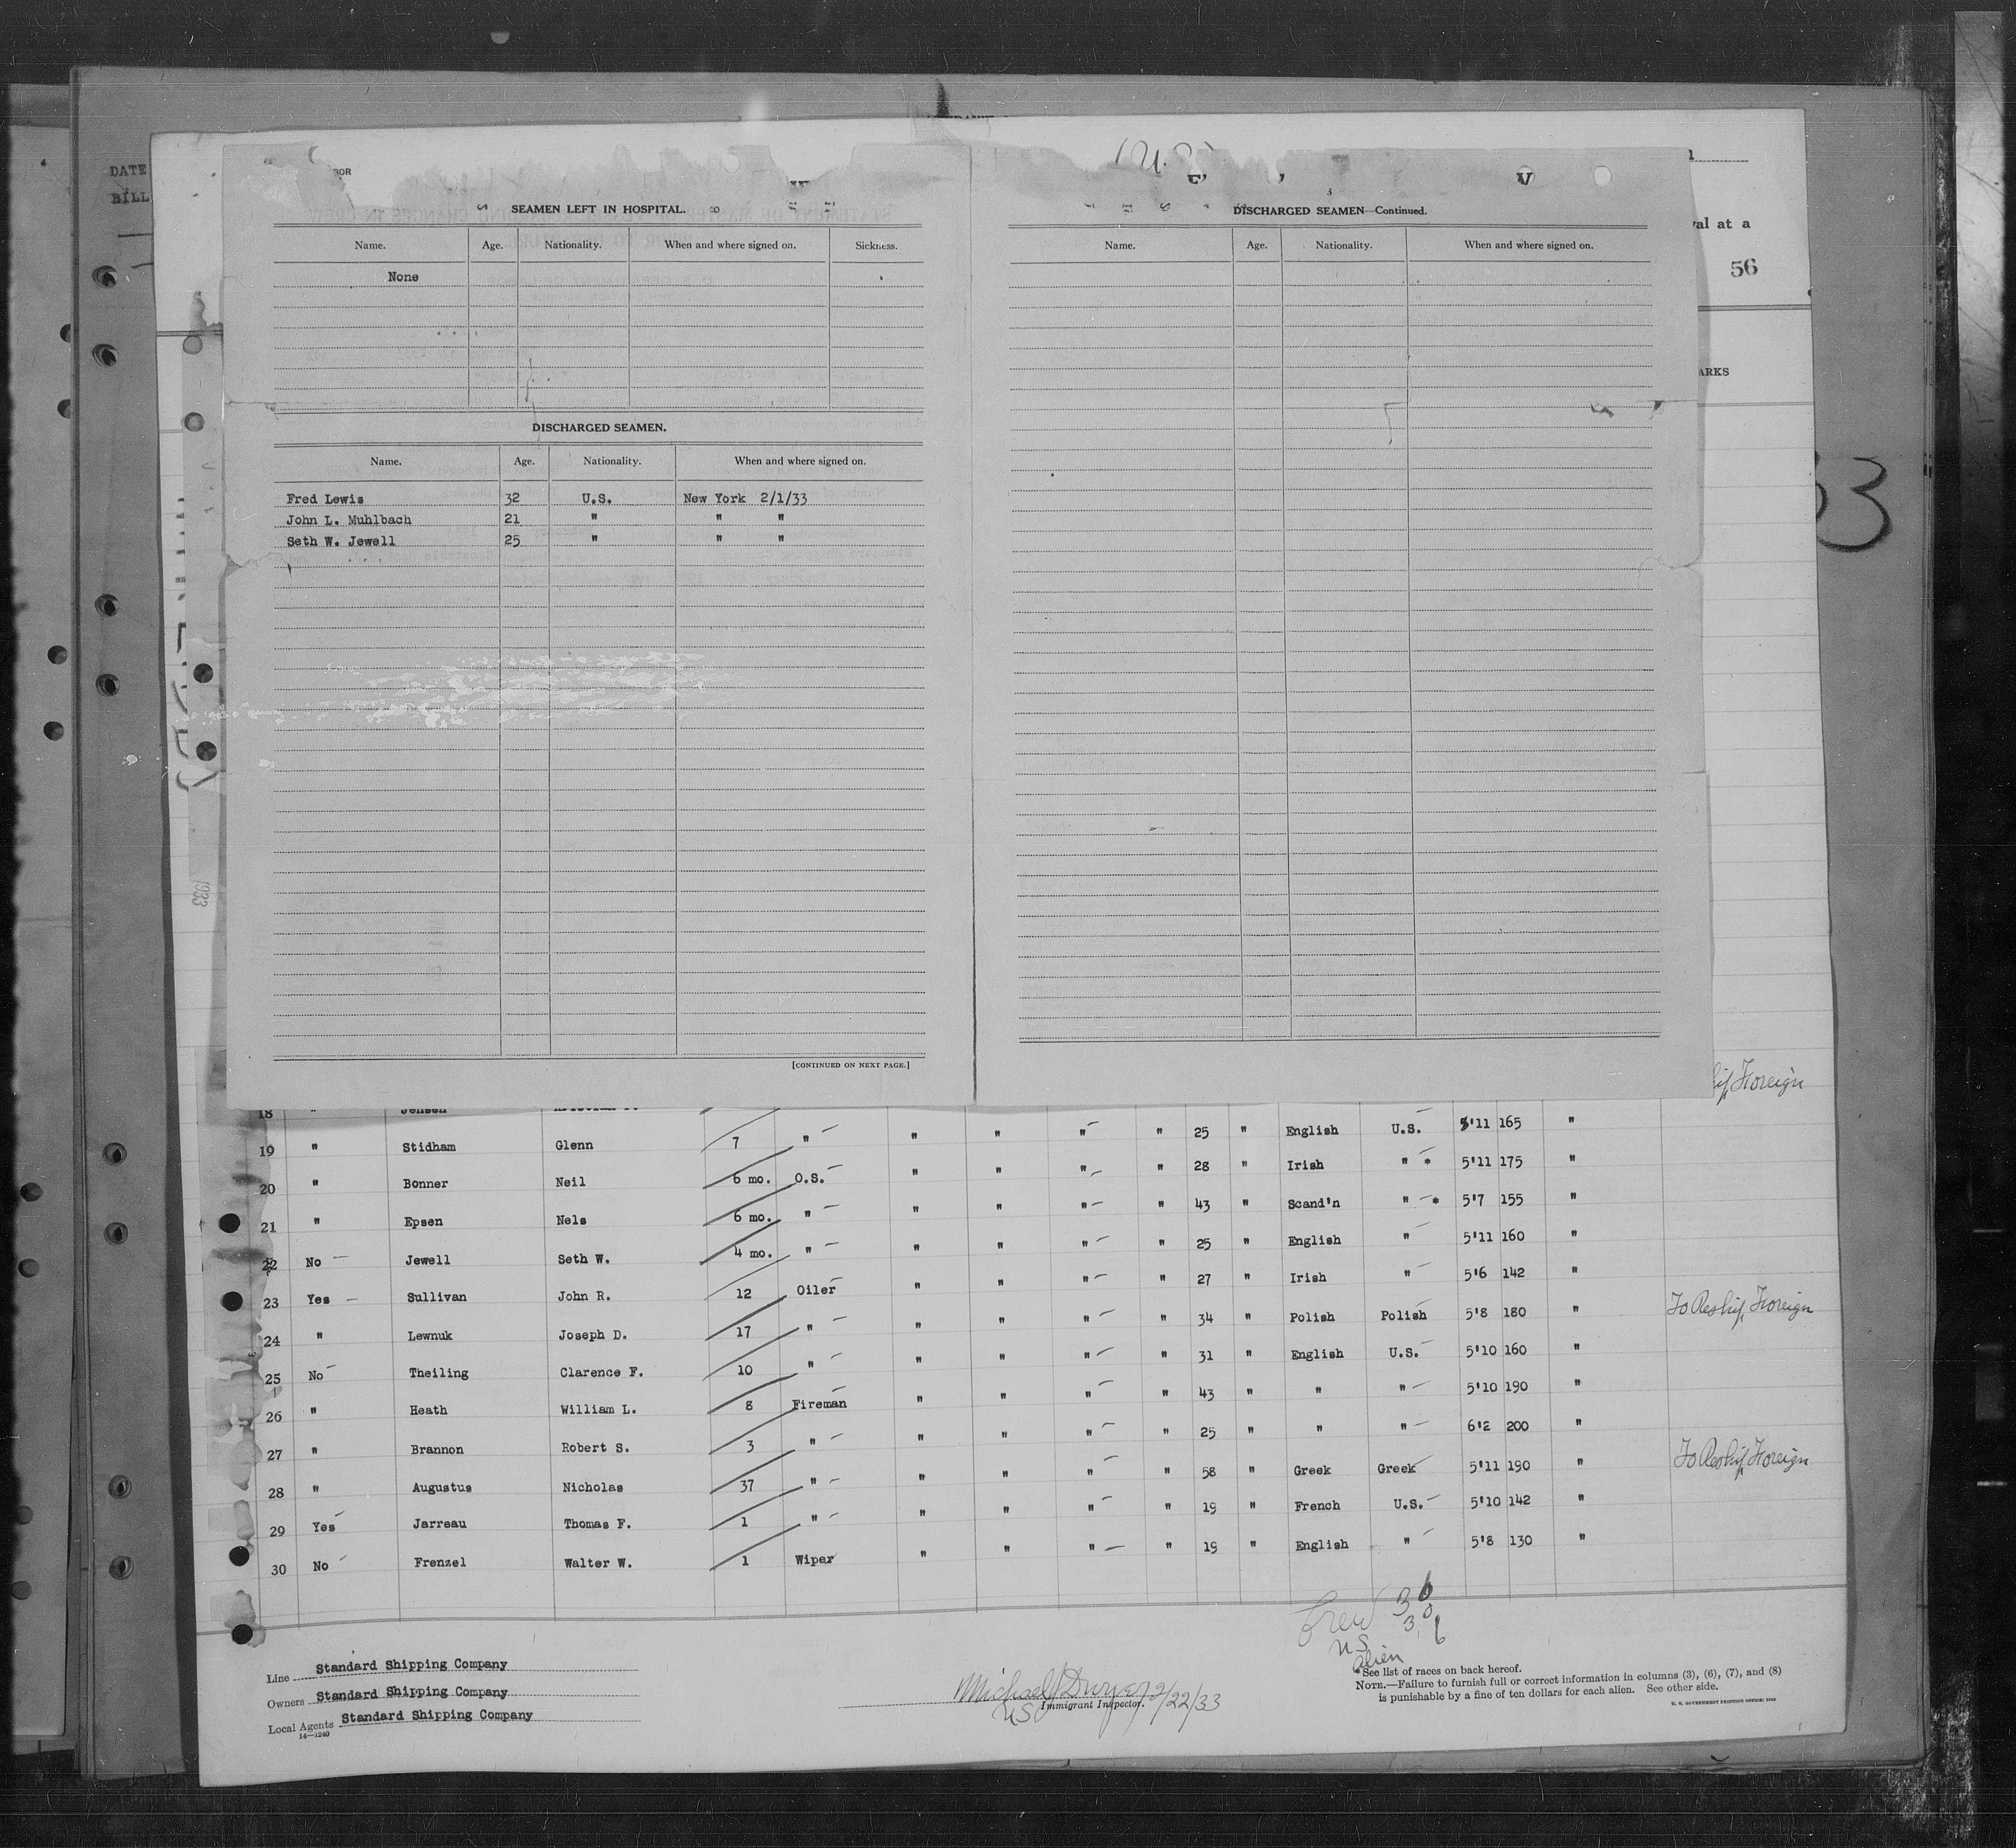 DATE
BILL
SEAMEN LEFT IN HOSPITAL.
Name. Age. Nationality. When and where signed on. Sickness.
None
DISCHARGED SEAMEN.
Name. Age. Nationality. When and where signed on.
Fred Lewis 32 U.S. New York 2/1/33
John L. Muhlbach 21 " " "
Seth W. Jewell 25 " " "
[CONTINUED ON NEXT PAGE.]
DISCHARGED SEAMEN—Continued.
Name. Age. Nationality. When and where signed on.
val at a
56
ARKS
33
1933
Foreign
18 " Jensen
19 " Stidham Glenn 7 " " " " " 25 " English U.S. 5'11 165 "
20 " Bonner Neil 6 mo. O.S. " " " " 28 " Irish " * 5'11 175 "
21 " Epsen Nels 6 mo. " " " " " 43 " Scand'n " * 5'7 155 "
22 No Jewell Seth W. 4 mo. " " " " " 25 " English " 5'11 160 "
23 Yes Sullivan John R. 12 Oiler " " " " 27 " Irish " 5'6 142 "
24 " Lewnuk Joseph D. 17 " " " " " 34 " Polish Polish 5'8 180 " To Reship Foreign
25 No Theiling Clarence F. 10 " " " " " 31 " English U.S. 5'10 160 "
26 " Heath William L. 8 Fireman " " " " 43 " " " 5'10 190 "
27 " Brannon Robert S. 3 " " " " " 25 " " " 6'2 200 "
28 " Augustus Nicholas 37 " " " " " 58 " Greek Greek 5'11 190 " To Reship Foreign
29 Yes Jarreau Thomas F. 1 " " " " " 19 " French U.S. 5'10 142 "
30 No Frenzel Walter W. 1 Wiper " " " " 19 " English " 5'8 130 "
Crew 36
US 30
alien 6
Line Standard Shipping Company
Owners Standard Shipping Company
Local Agents Standard Shipping Company
14—1240
Michael Dwyer 2/22/33
US Immigrant Inspector.
*See list of races on back hereof.
NOTE.—Failure to furnish full or correct information in columns (3), (6), (7), and (8)
is punishable by a fine of ten dollars for each alien. See other side.